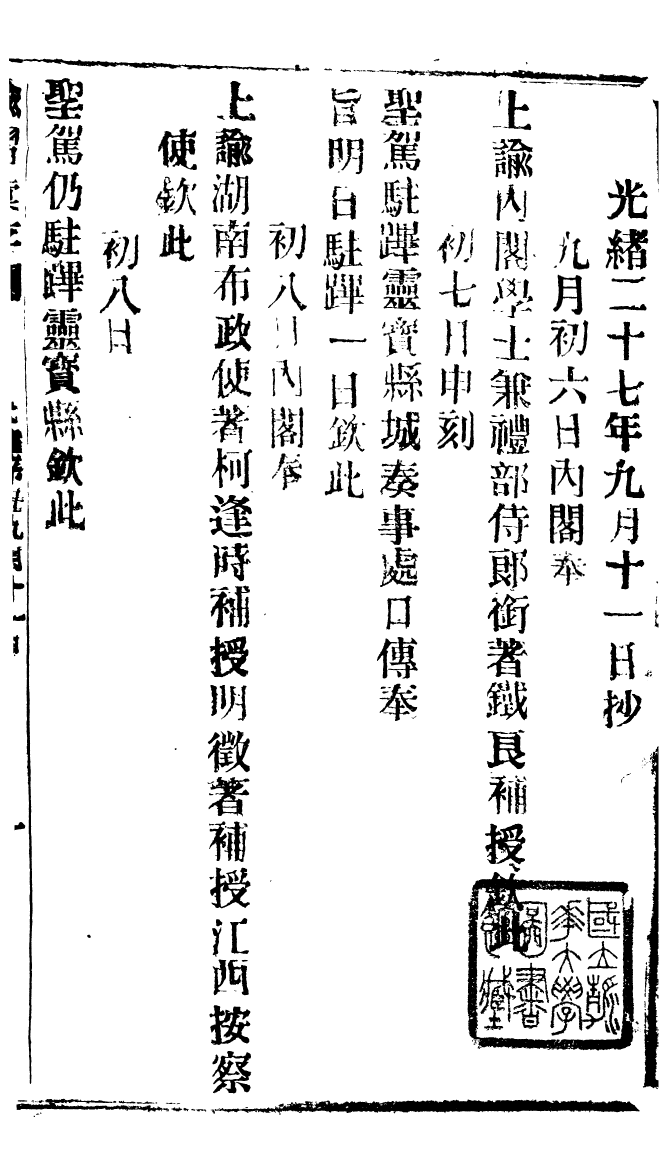 光緒二十七年九月十一日抄
九月初六日內閣奉
上諭內閣學士兼禮部侍郎銜著鐵良補授欽此
初七日申刻
聖駕駐蹕靈寶縣城奏事處口傳奉
旨明日駐蹕一日欽此
初八日內閣奉
上諭湖南布政使著柯逢時補授明徵著補授江西按察
使欽此
初八日
聖駕仍駐蹕靈寶縣欽此
國立清華大學圖書館藏